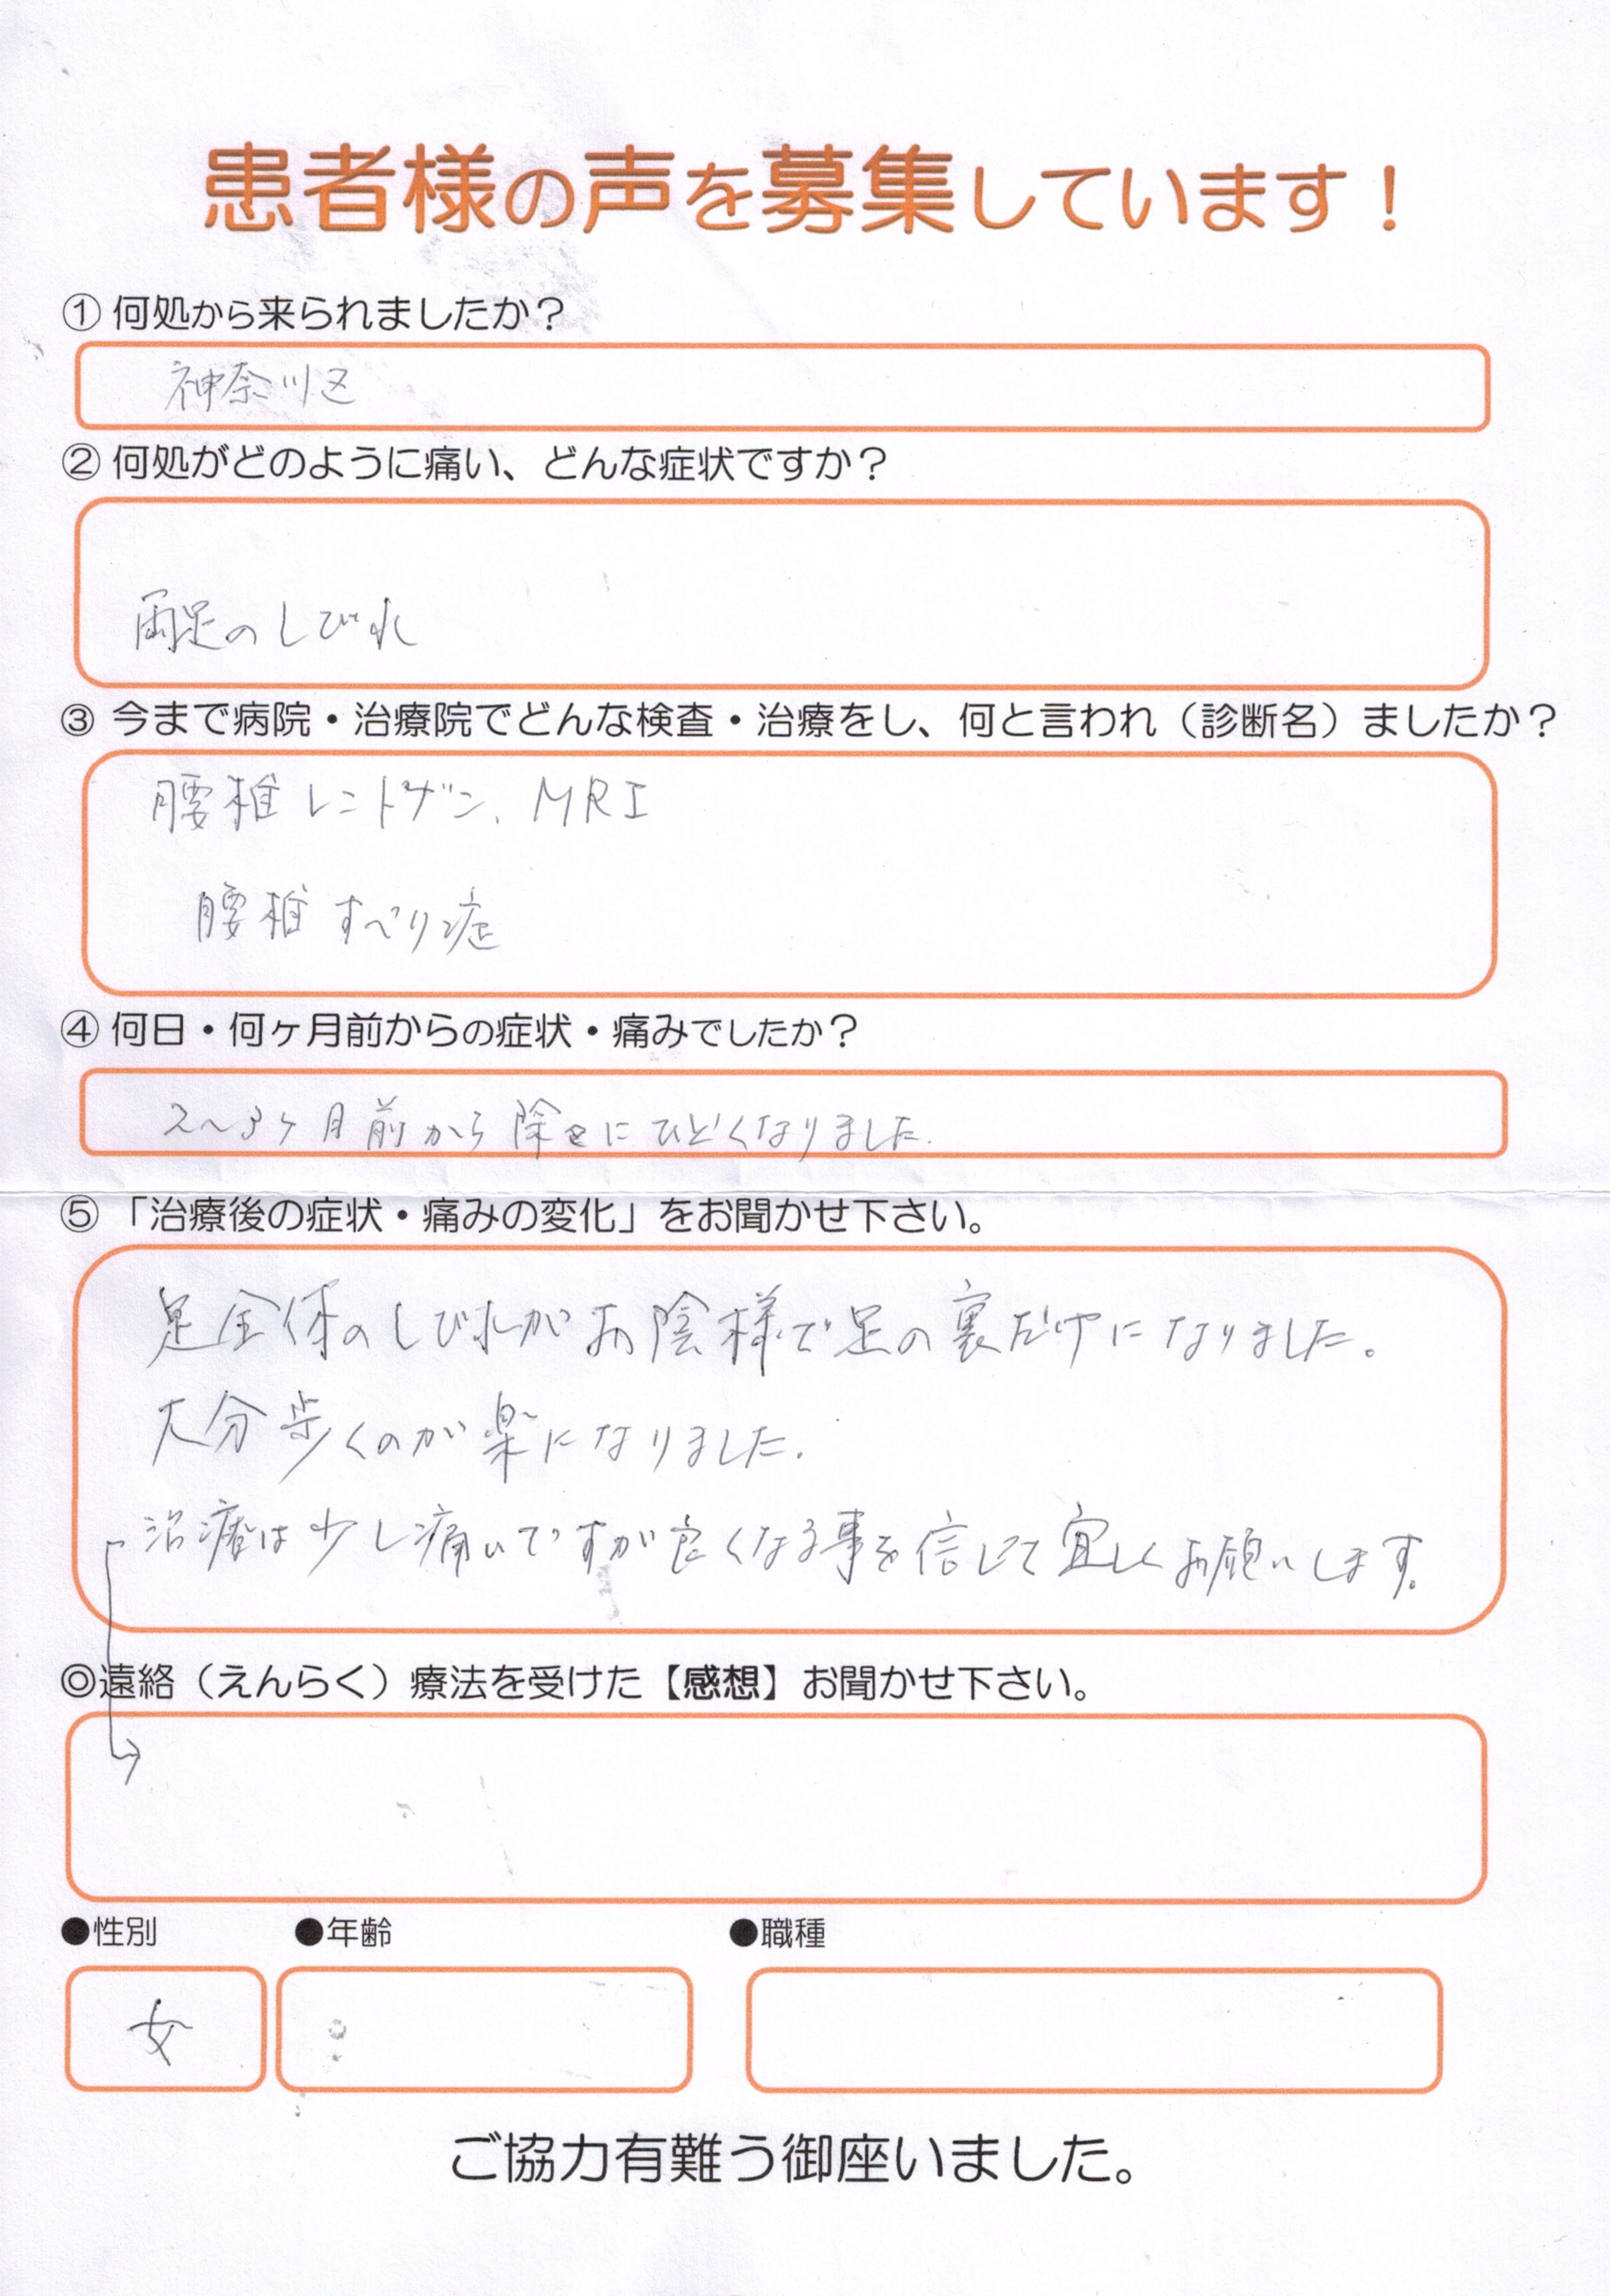 患者様の声を募集しています！
① 何処から来られましたか？
神奈川区
② 何処がどのように痛い、どんな症状ですか？
両足のしびれ
③ 今まで病院・治療院でどんな検査・治療をし、何と言われ（診断名）ましたか？
腰椎レントゲン、MRI
腰椎すべり症
④ 何日・何ヶ月前からの症状・痛みでしたか？
2〜3ヶ月前から除々にひどくなりました.
⑤ 「治療後の症状・痛みの変化」をお聞かせ下さい。
足全体のしびれがお陰様で足の裏だけになりました。
大分歩くのが楽になりました.
治療は少し痛いですが良くなる事を信じて宜しくお願いします。
◎遠絡（えんらく）療法を受けた【感想】お聞かせ下さい。
●性別 ●年齢 ●職種
女
ご協力有難う御座いました。